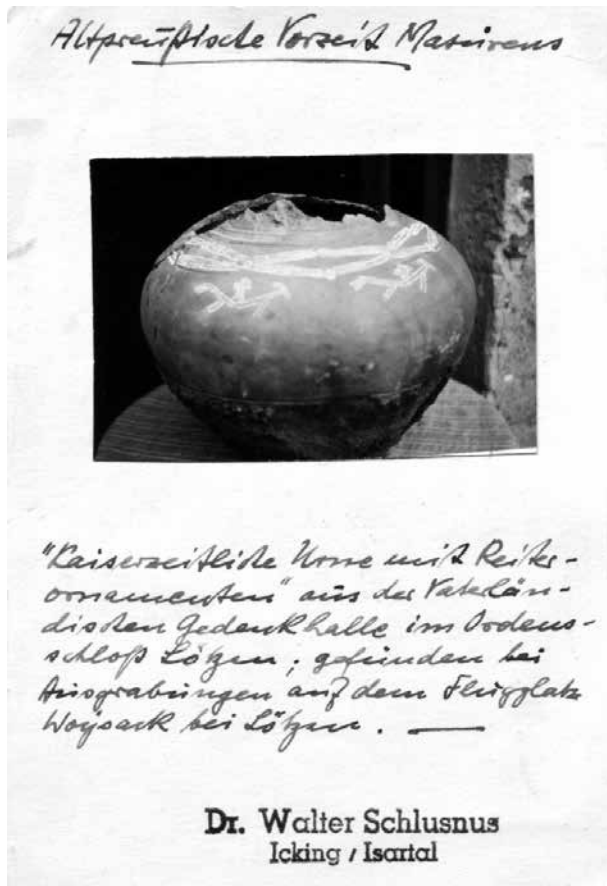 Altpreußische Vorzeit Masurens
"Kaiserzeitliche Urne mit Reiter-
ornamenten" aus der Vaterlän-
dischen Gedenkhalle im Ordens-
schloß Lötzen; gefunden bei
Ausgrabungen auf dem Flugplatz
Woysack bei Lötzen. —
Dr. Walter Schlusnus
Icking / Isartal